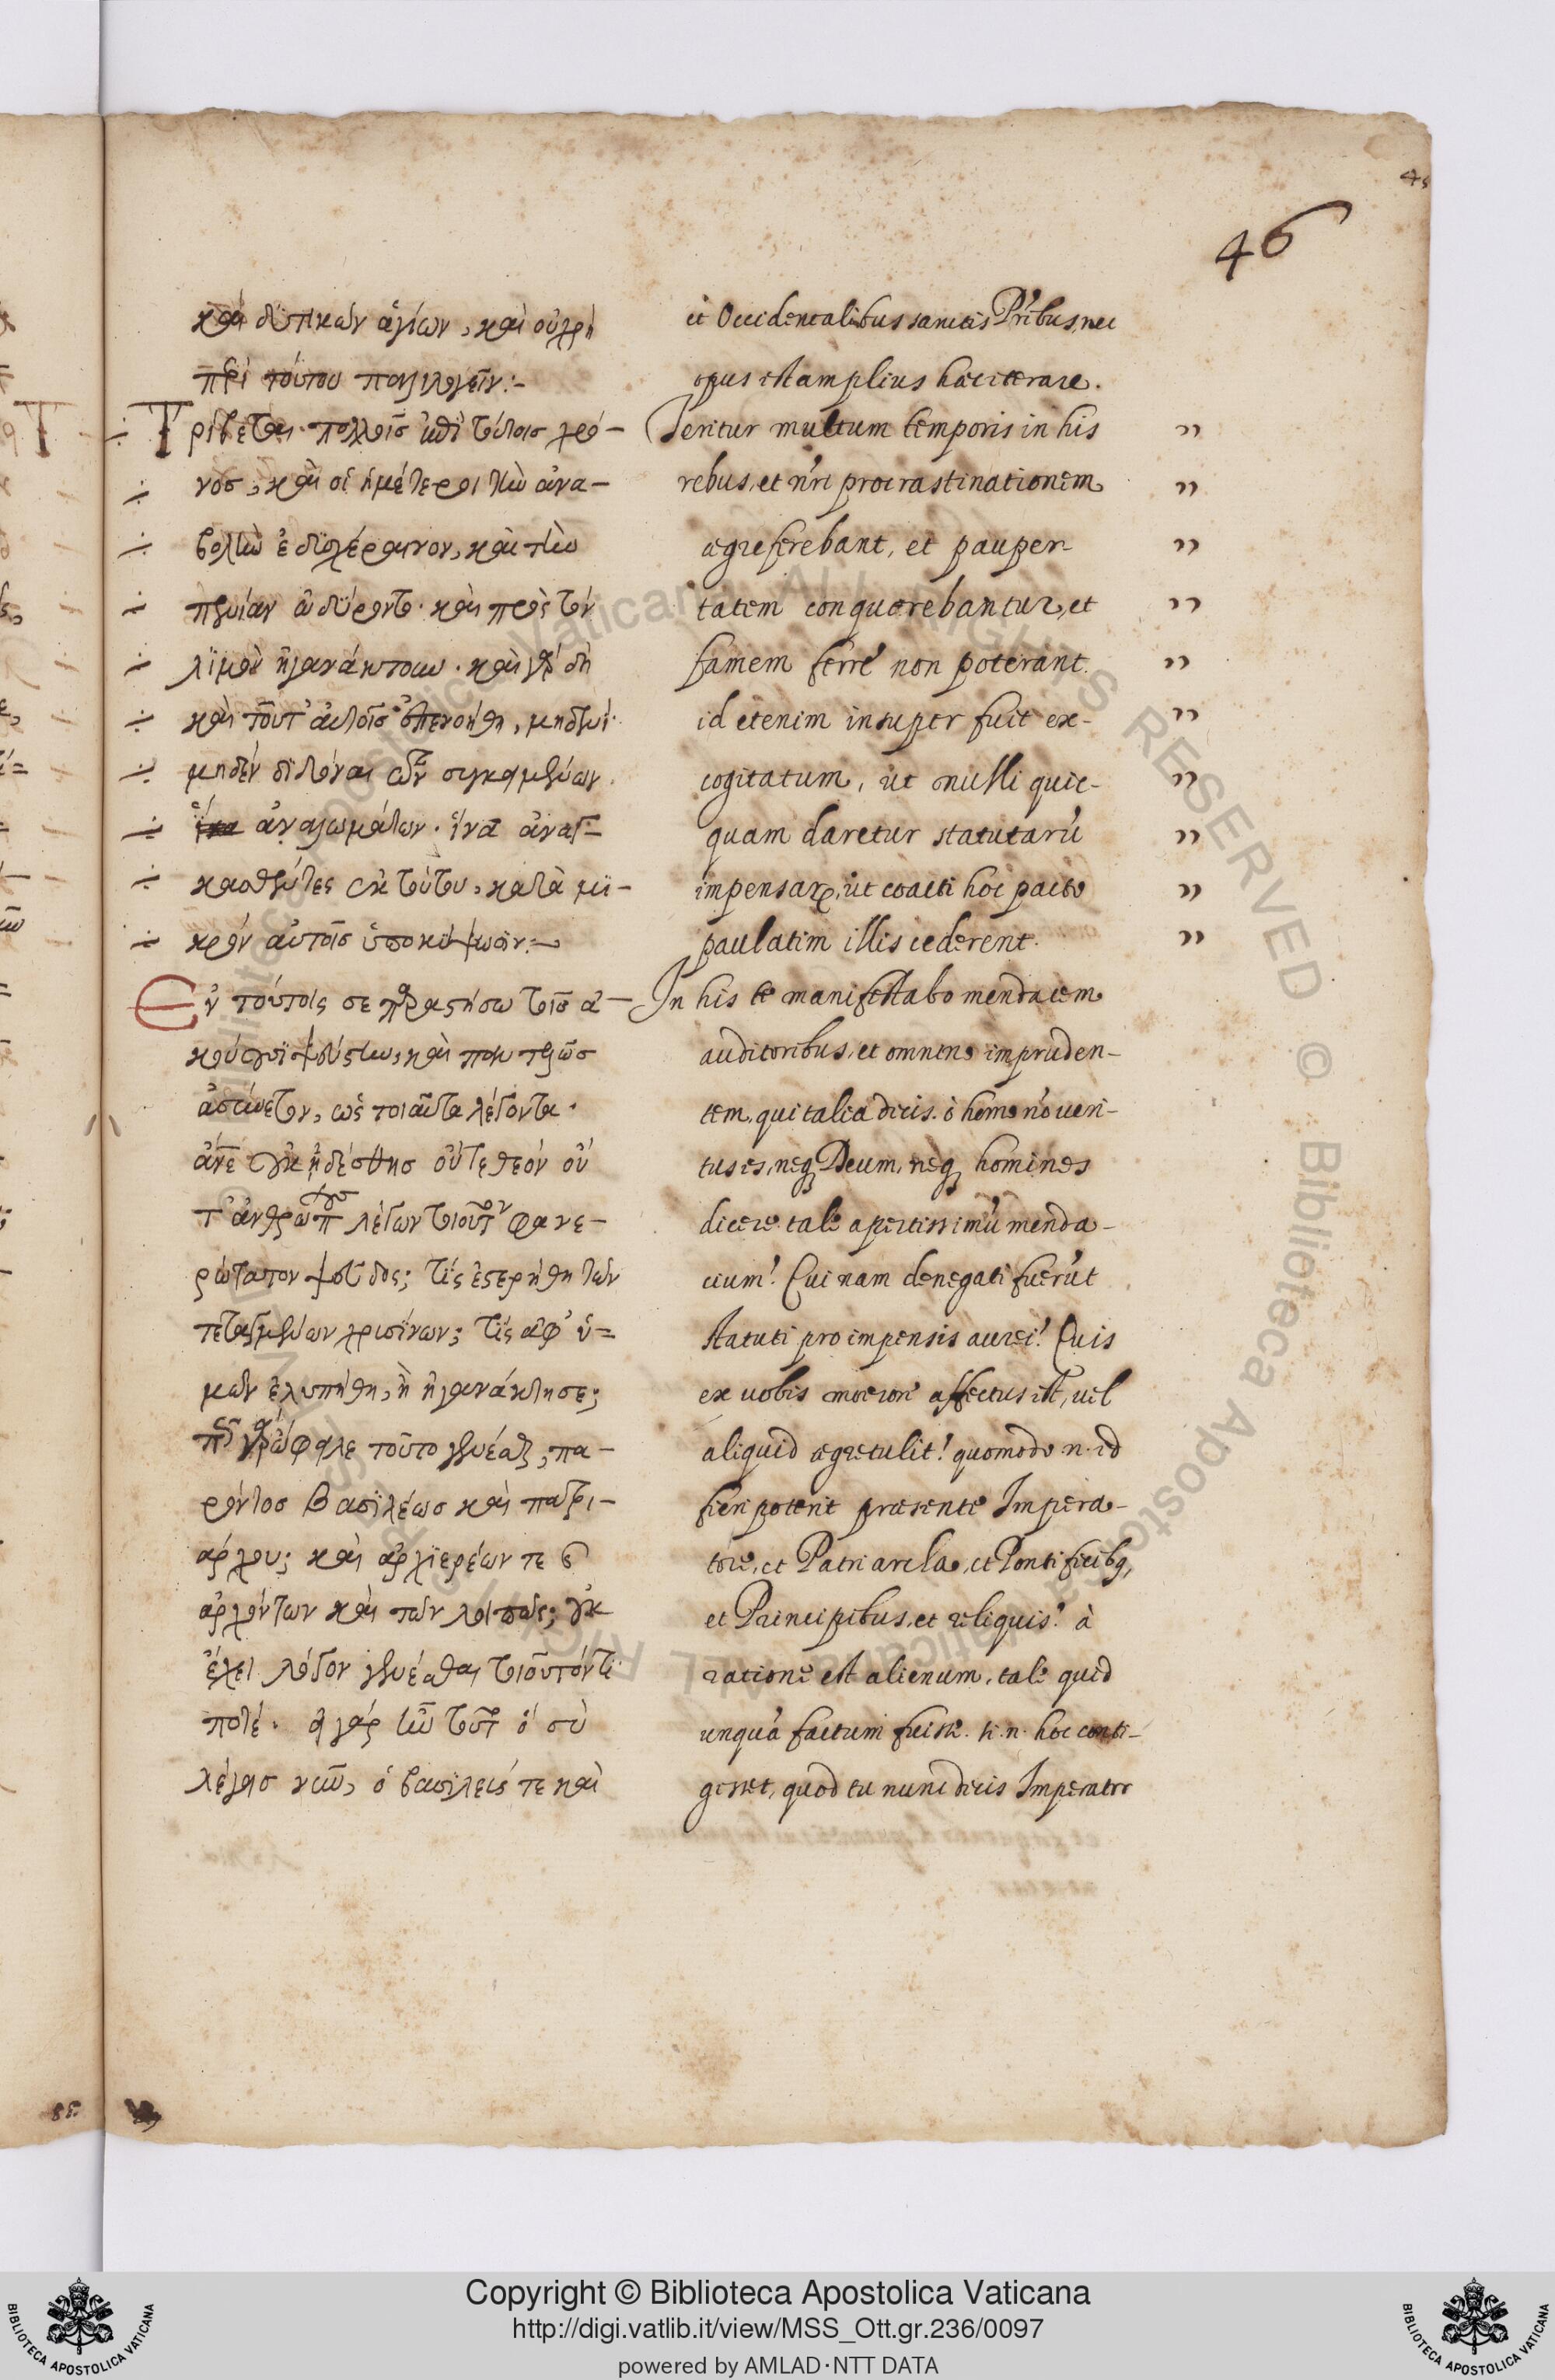 46
καὶ δυτικῶν ἁγίων, καὶ οὐ χρὴ
περὶ τούτου παλιλλογεῖν:-
Τρίβεται πολλοῖς ἐπὶ τούτοις χρό-
νος, καὶ οἱ ἡμέτεροι τὴν ἀνα-
βολὴν ἐδυσχέραινον, καὶ τὴν
πενίαν ὠδύροντο. καὶ πρὸς τὸν
λιμὸν ἠγανάκτουν. καὶ γὰρ δὴ
καὶ τοῦτ' αὐτοῖς ἐπενοήθη, μηδενὶ
μηδὲν διδόναι τῶν συγκειμένων
ἀναλωμάτων. ἵνα ἀναγ-
κασθέντες ἐκ τούτου, κατὰ μι-
κρὸν αὐτοῖς ὑποκύψωσιν:-
Ἐν τούτοις σε παραστήσω τοῖς ἀ-
κούουσι ψεύστην, καὶ παντελῶς
ἀσύνετον, ὡς τοιαῦτα λέγοντα.
ἄνε οὐκ ᾐδέσθης οὔτε θεὸν οὔ
τ' ἀνθρώπους λέγων τοιοῦτον φανε-
ρώτατον ψεῦδος; τίς ἐστερήθη τῶν
τεταγμένων χρυσίνων; τίς ἀφ' ὑ=
μῶν ἐλυπήθη, ἢ ἠγανάκτησε;
πῶς γὰρ ὤφειλε τοῦτο γενέσθαι, πα-
ρόντος βασιλέως καὶ πατρι-
άρχου; καὶ ἀρχιερέων τε καὶ
ἀρχόντων καὶ τῶν λοιπῶν; οὐκ
ἔχει λόγον γενέσθαι τοιοῦτόν τι
ποτέ. εἰ γὰρ ἦν τοῦτο ὃ σὺ
λέγεις νῦν, ὁ βασιλεύς τε καὶ
et Occidentalibus sanctis Pribus, nec
opus est amplius hæc iterare.
Teritur multum temporis in his
rebus, et nri procrastinationem
ægre ferebant, et pauper-
tatem conquærebantur, et
famem ferre non poterant.
id etenim insuper fuit ex-
cogitatum, ut nulli quic-
quam daretur statutarũ
impensarꝝ, ut coacti hoc pacto
paulatim illis cederent.
In his te manifestabo mendacem
auditoribus, et omnino impruden-
tem, qui talia dicis. ò homo nõ veri-
tus es, neq Deum, neq homines
dicere tale apertissimũ menda-
cium? Cui nam denegati fuerũt
statuti pro impensis aurei? Quis
ex vobis moerore affectus est, vel
aliquid ægre tulit? quomodo n. id
fieri poterit præsente Impera-
tore, et Patriarcha, et Pontificibq,
et Principibus, et reliquis? à
ratione est alienum, tale quid
unquã factum fuisse. si. n. hoc conti-
gisset, quod tu nunc dicis Imperator
Copyright © Biblioteca Apostolica Vaticana
http://digi.vatlib.it/view/MSS_Ott.gr.236/0097
powered by AMLAD·NTT DATA